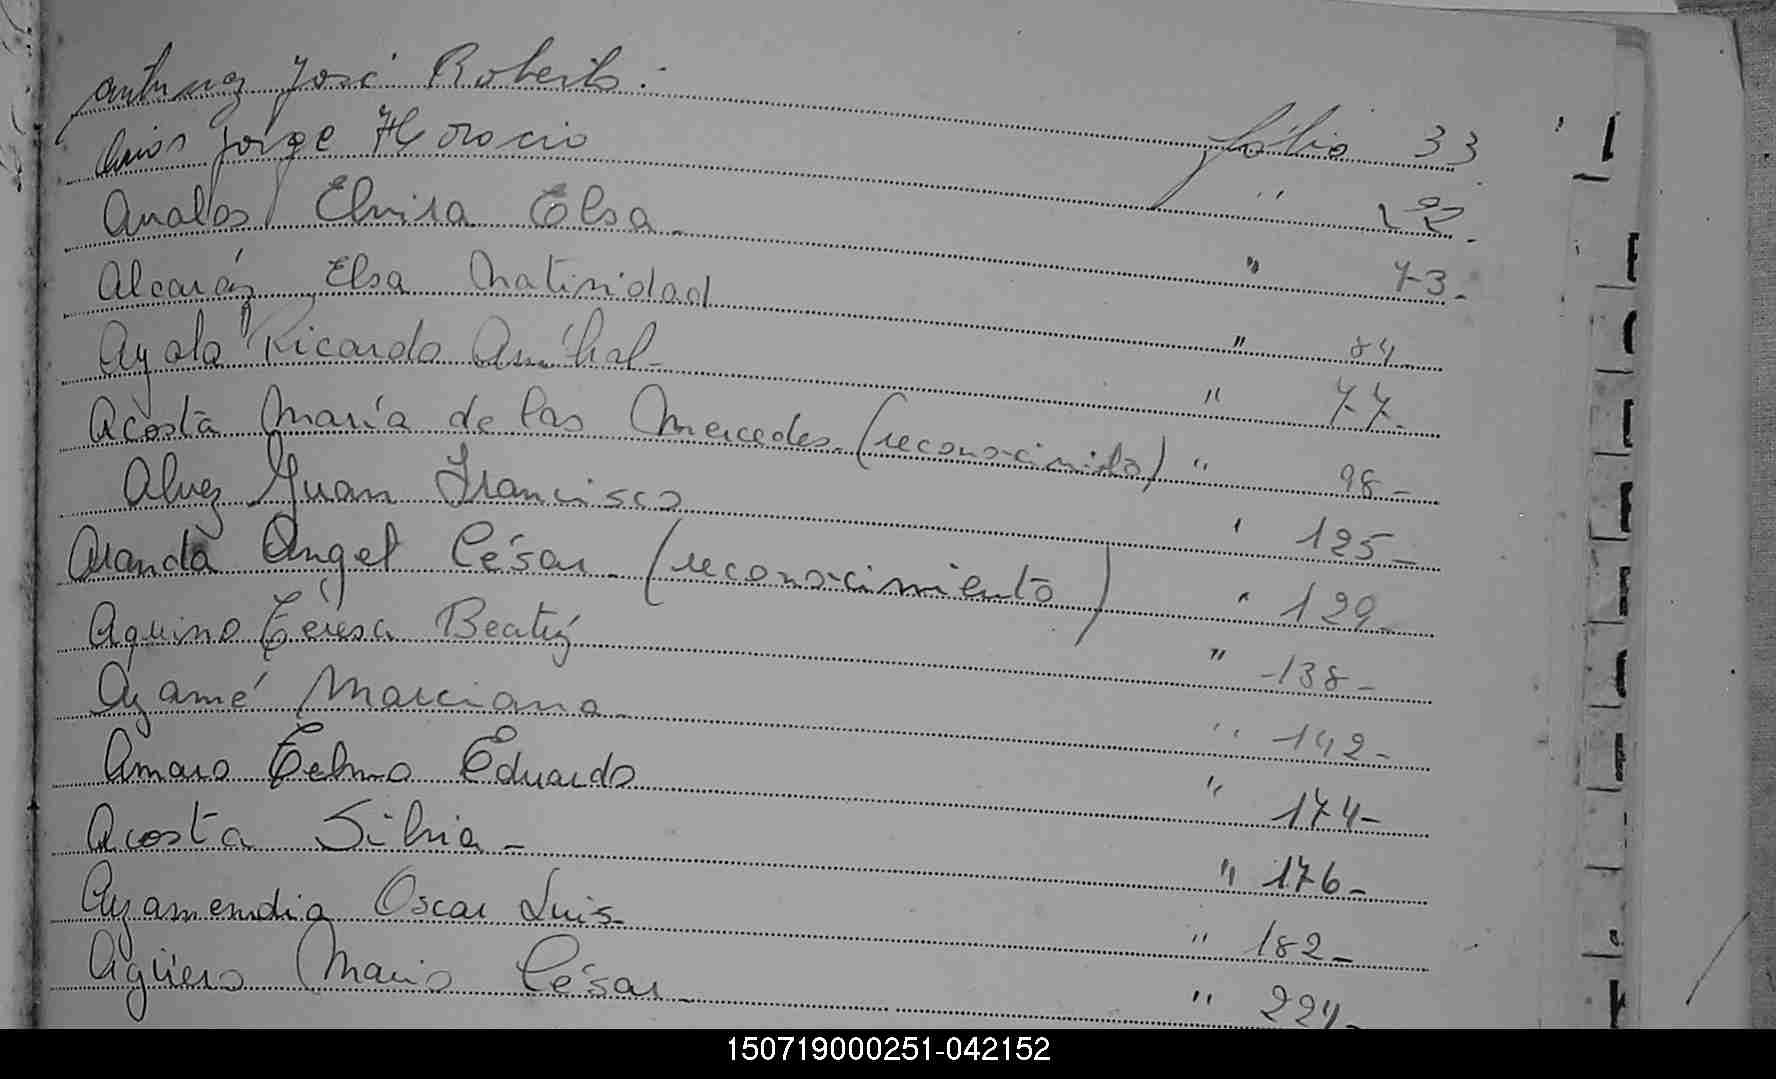 Antunez José Roberto. folio 33
Jorge Horacio "
Avalos Elvira Elsa - " 73 -
Alcaráz Elsa Natividad " 84
Ayala Ricardo Aníbal - " 77 -
Acosta María de las Mercedes. (reconocimito) " 98 -
Alvez Juan Francisco " 125 -
Aranda Angel César - (reconocimiento) " 129 -
Aquino Teresa Beatriz " 138 -
Ayamé Marciana - " 142 -
Amaro Telmo Eduardo " 174 -
Acosta Silvia - " 176 -
Ayamendia Oscar Luis - " 182 -
Agüero Mario César - " 224 -
150719000251-042152